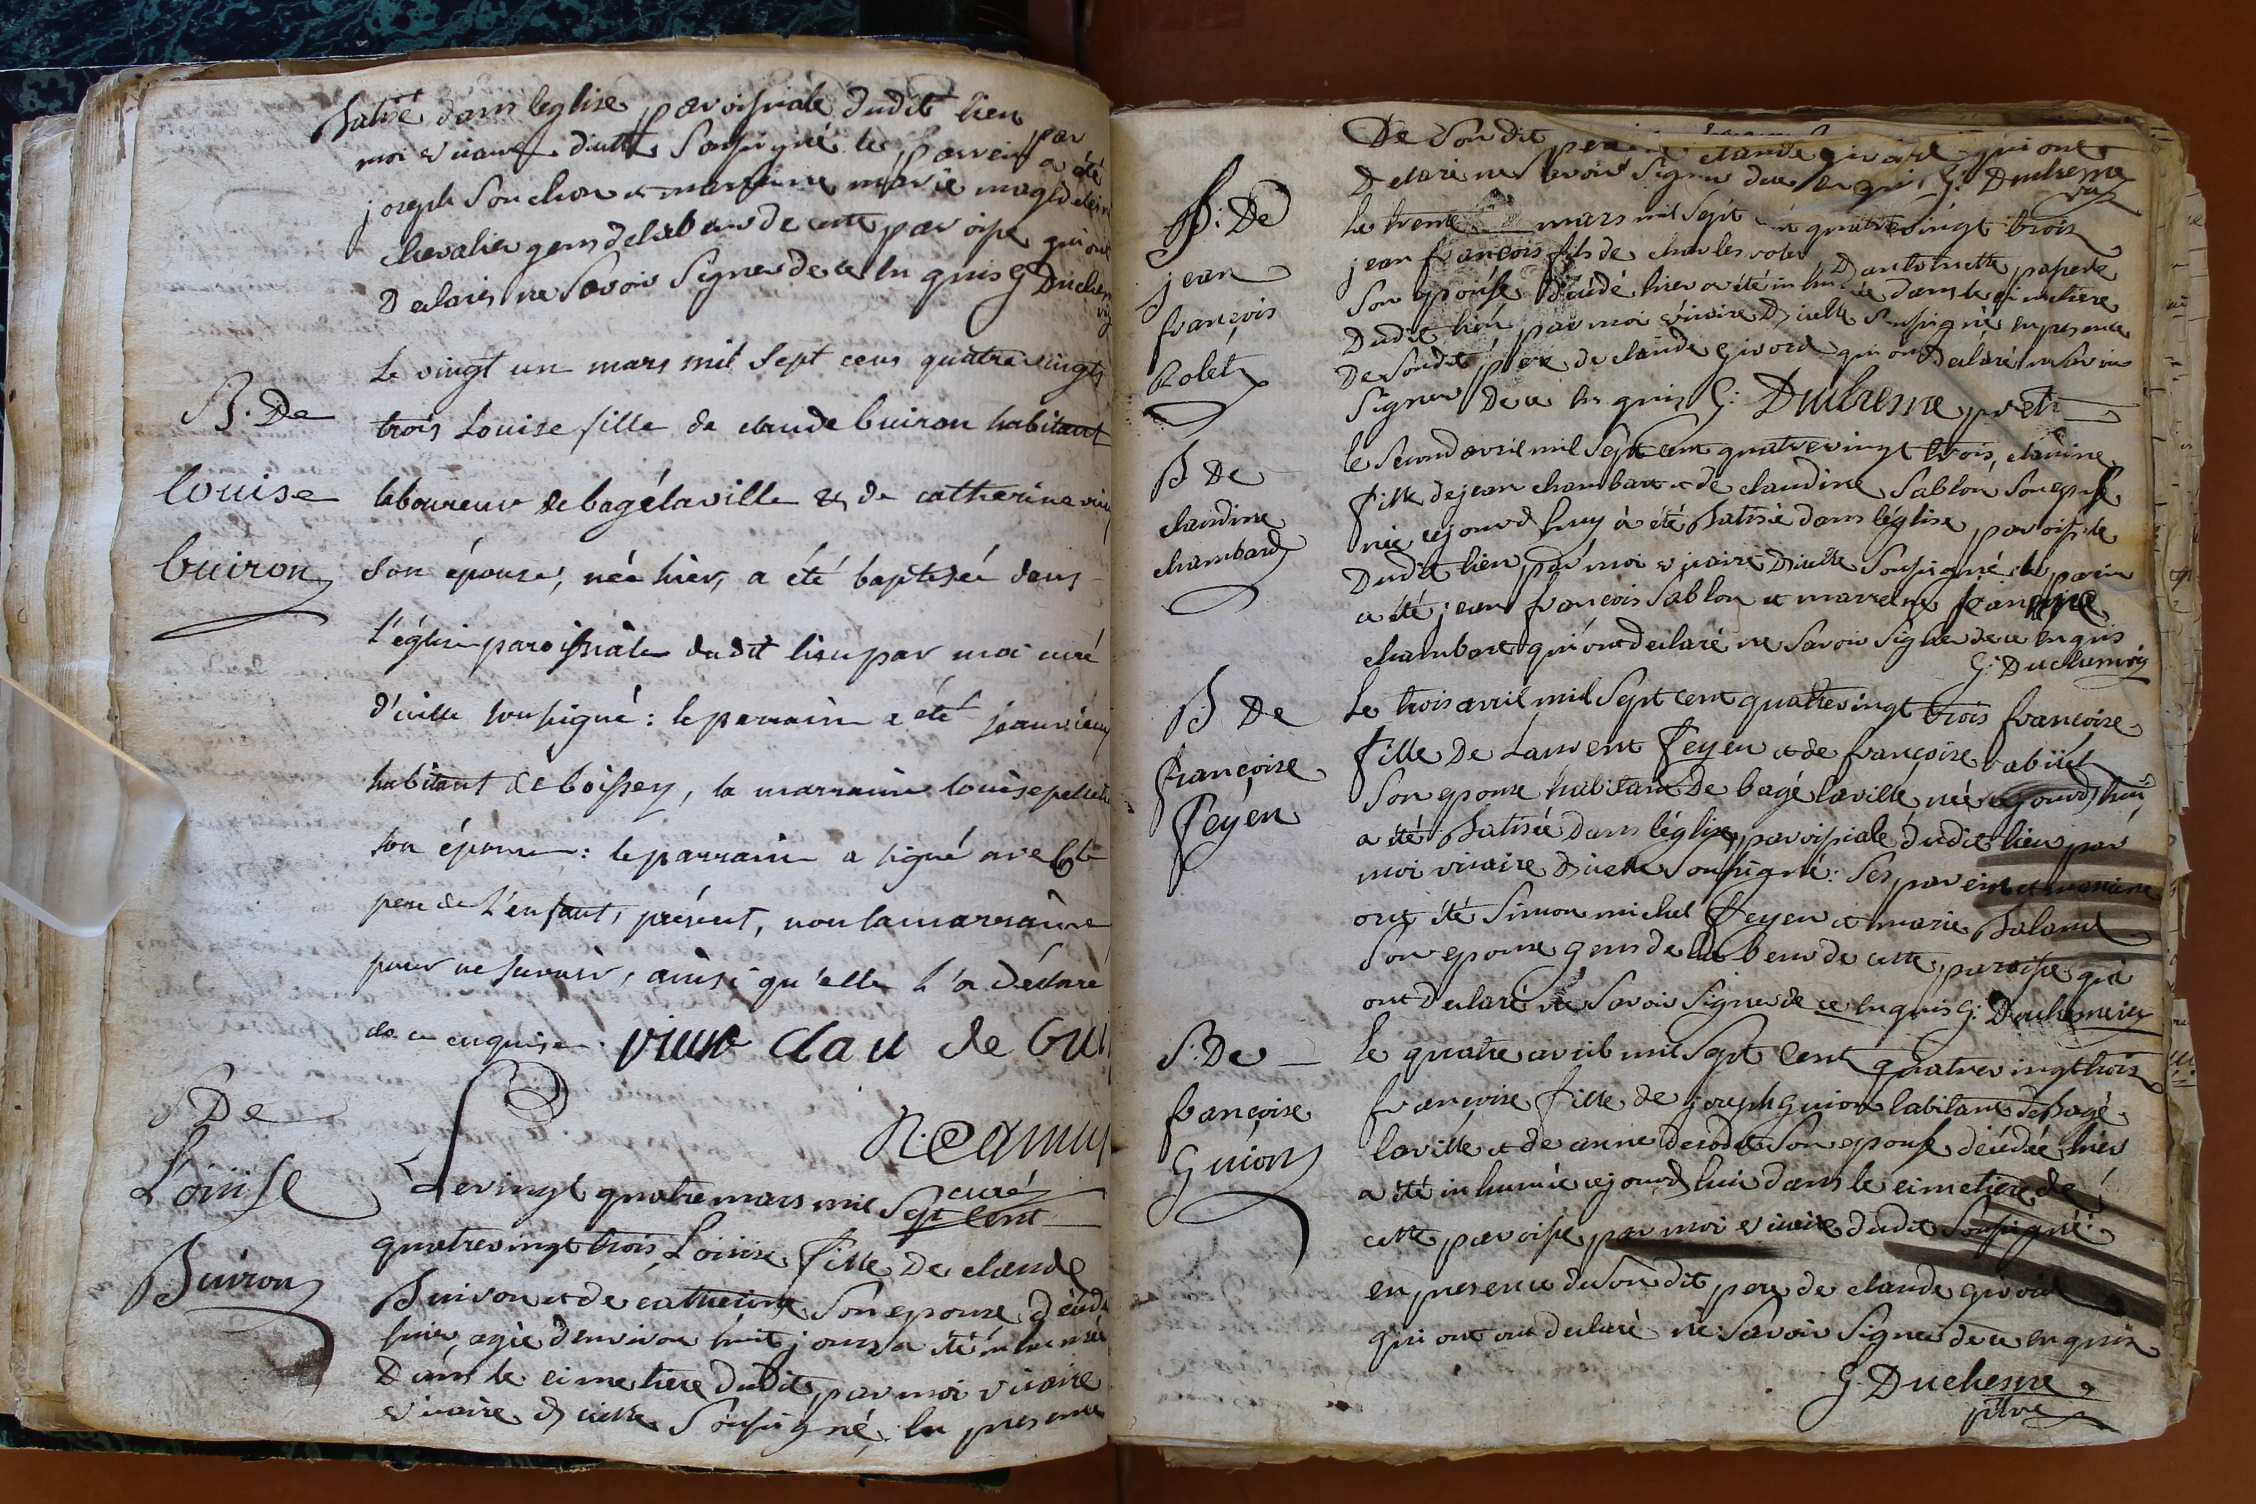 Batisé dans leglise paroissiale dudit lieu par
moi vicaire dicelle soussigné le parein a été
joseph Souchon et marreine marie magdeleine
chevalier gens delabeur de cette paroisse qui ont
Declarés ne savoir signer de ce en quis G Duchesne
vic
B. De
louise
buiron
Le vingt un mars mil sept cens quatrevingts
trois Louise fille de claude buiron habitant
laboureur de bagélaville & de catherine
son épouse, née hier, a été baptisée dans
l'église paroissiale dudit lieu par moi curé
d'icelle soussigné: le parrain a été jean vieux
habitant de boissey, la marraine louise
son épouse: le parrain a signé avec le
pere de l'enfant, présent, non la marraine
pour ne savoir, ainsi qu'elle l'a déclaré
de ce enquise. vieux clau de bui
N. camus
curé
S De
Loüise
Buiron
Le vingt quatre mars mil sept cent
quatrevingt trois Loüise fille De claude
Buiron et de catherine son epouse décédé
hier, agée d'environ huit jours a été inhumée
Dans le cimetiere dudit par moi vicaire
vicaire dicelle soussigné, en presence
De son dit pere claude givord qui ont
Declaré ne savoir signer de ce en quis G: Duchesne
vic
S: De
jean
françois
Rolet
Le trente mars mil sept quatrevingt trois
jean françois fils de charles rolet Dantoinette
son epouse décédé hier a été inhumé dans le cimetiere
Dudit lieu par moi vicaire Dicelle soussigné en presence
De sondit pere de claude givord qui ont declaré ne savoir
signer De ce en quis G: Duchesne prêtr
B De
claudine
chambard
le second avril mil sept cent quatrevingt trois, claudine
fille de jean chambard et de claudine Sablon son epouse
née cejourd huy à été Batisée dans léglise paroissiale
Dudit lieu par moi vicaire Dicelle soussigné le parein
a été jean françois Sablon et marreine jeanne
chambard qui ont declaré ne savoir signer de ce enquis
G: Duchesne vic
B De
françoise
Feyen
Le trois avril mil sept cent quatrevingt trois françoise
fille De Laurent Feyen et de françoise rabüel
son epouse habitant De bagé laville, née cejourd huy
a été Batisée Dans léglise paroissiale dudit lieu par
moi vicaire Dicelle soussigné: Ses parein et marreine
ont été Simon michel Feyen et marie Baland
son epouse gens de la beur de cette paroisse qui
ont declaré ne savoir signer de ce enquis G: Duchesne vic
S: De
françoise
Guion
Le quatre avril mil sept cent quatrevingt trois
françoise fille de joseph Guion labitant de Bagé
laville et de anne son epouse décédée hier
a été inhumée cejourd huis dans le cimetiere de
cette paroisse par moi vicaire dudit soussigné:
en presence du son dit pere de claude givord
qui ont ont declaré ne savoir signer de ce enquis
G. Duchesne
ptre